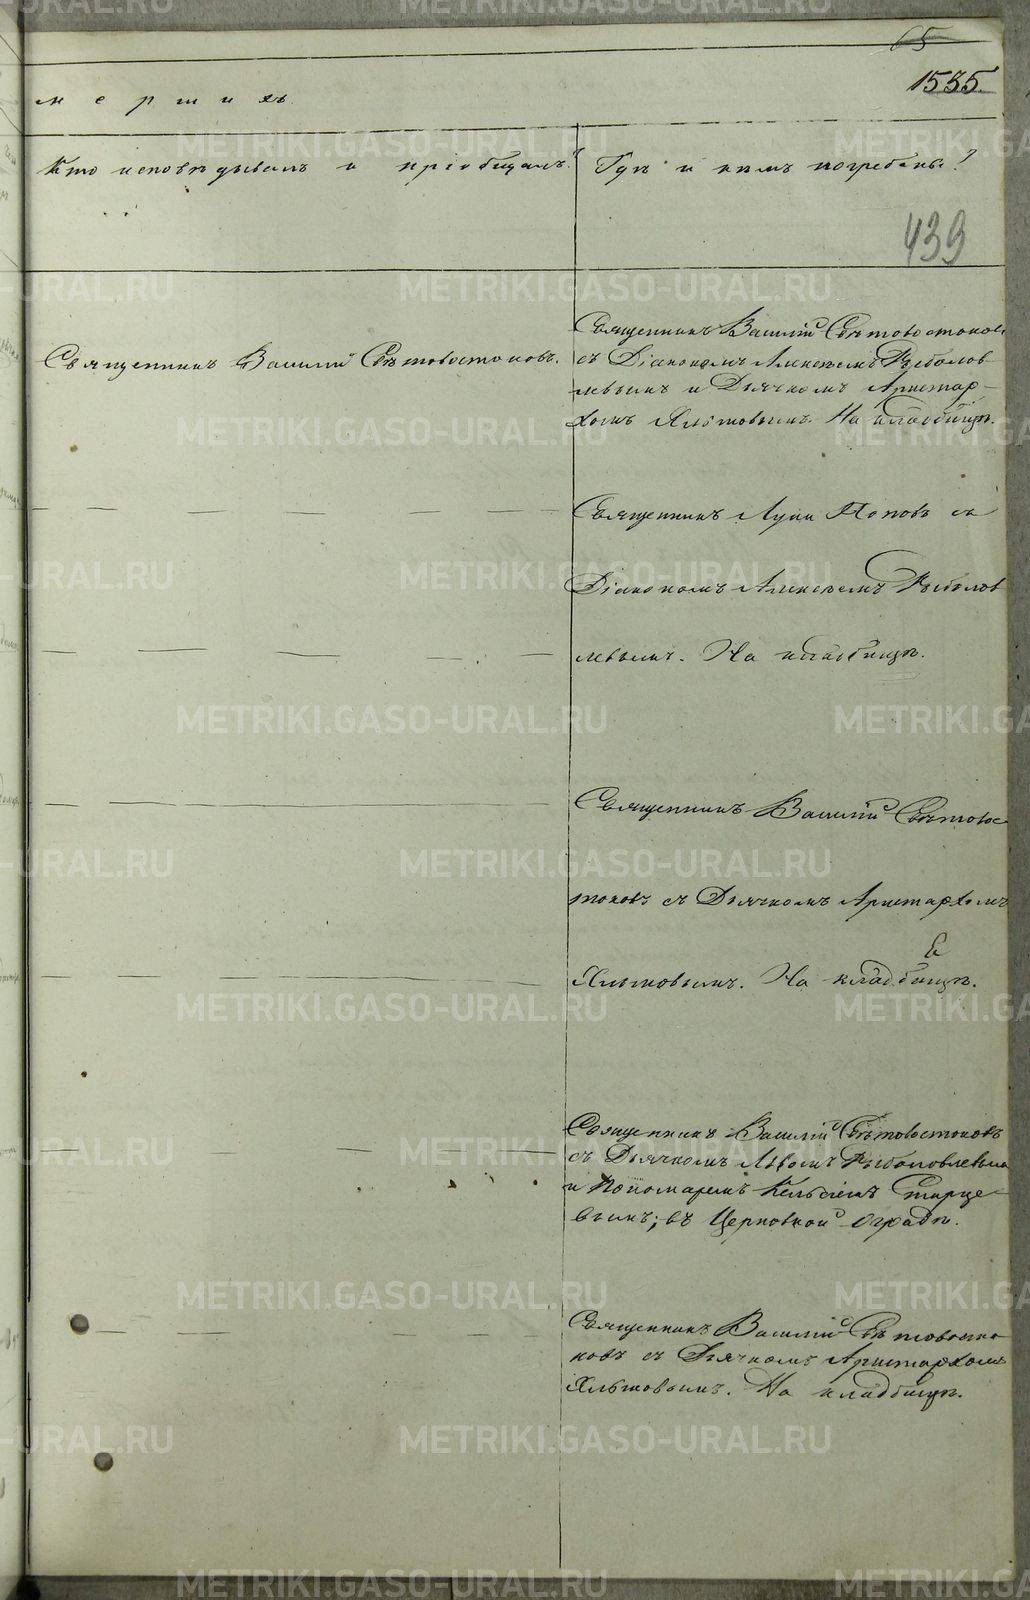 65
1535.
мершихъ.
Кто исповѣдывалъ и пріобщалъ?
Гдѣ и кѣмъ погребены?
439
Священникъ Василій Свѣтовостоковъ.
Священникъ Василій Свѣтовостоковъ
съ Діакономъ Алексѣемъ Рыболов
левымъ и Дьячкомъ Аристар-
хомъ Хлытовымъ. На кладбищѣ.
Священникъ Луки Поповъ съ
Діакономъ Алексѣемъ Рыболов
левымъ. На кладбищѣ.
Священникъ Василій Свѣтовос
токовъ съ Дьячкомъ Аристархомъ
Хлытовымъ. На кладбищѣ.
Священникъ Василій Свѣтовостоковъ
съ Дьячкомъ Львомъ Рыболовлевымъ
и Пономаремъ Кельсіемъ Старце-
вымъ; въ Церковной оградѣ.
Священникъ Василій Свѣтовосто
ковъ съ Дьячкомъ Аристархомъ
Хлытовымъ. На кладбищѣ.
METRIKI.GASO-URAL.RU